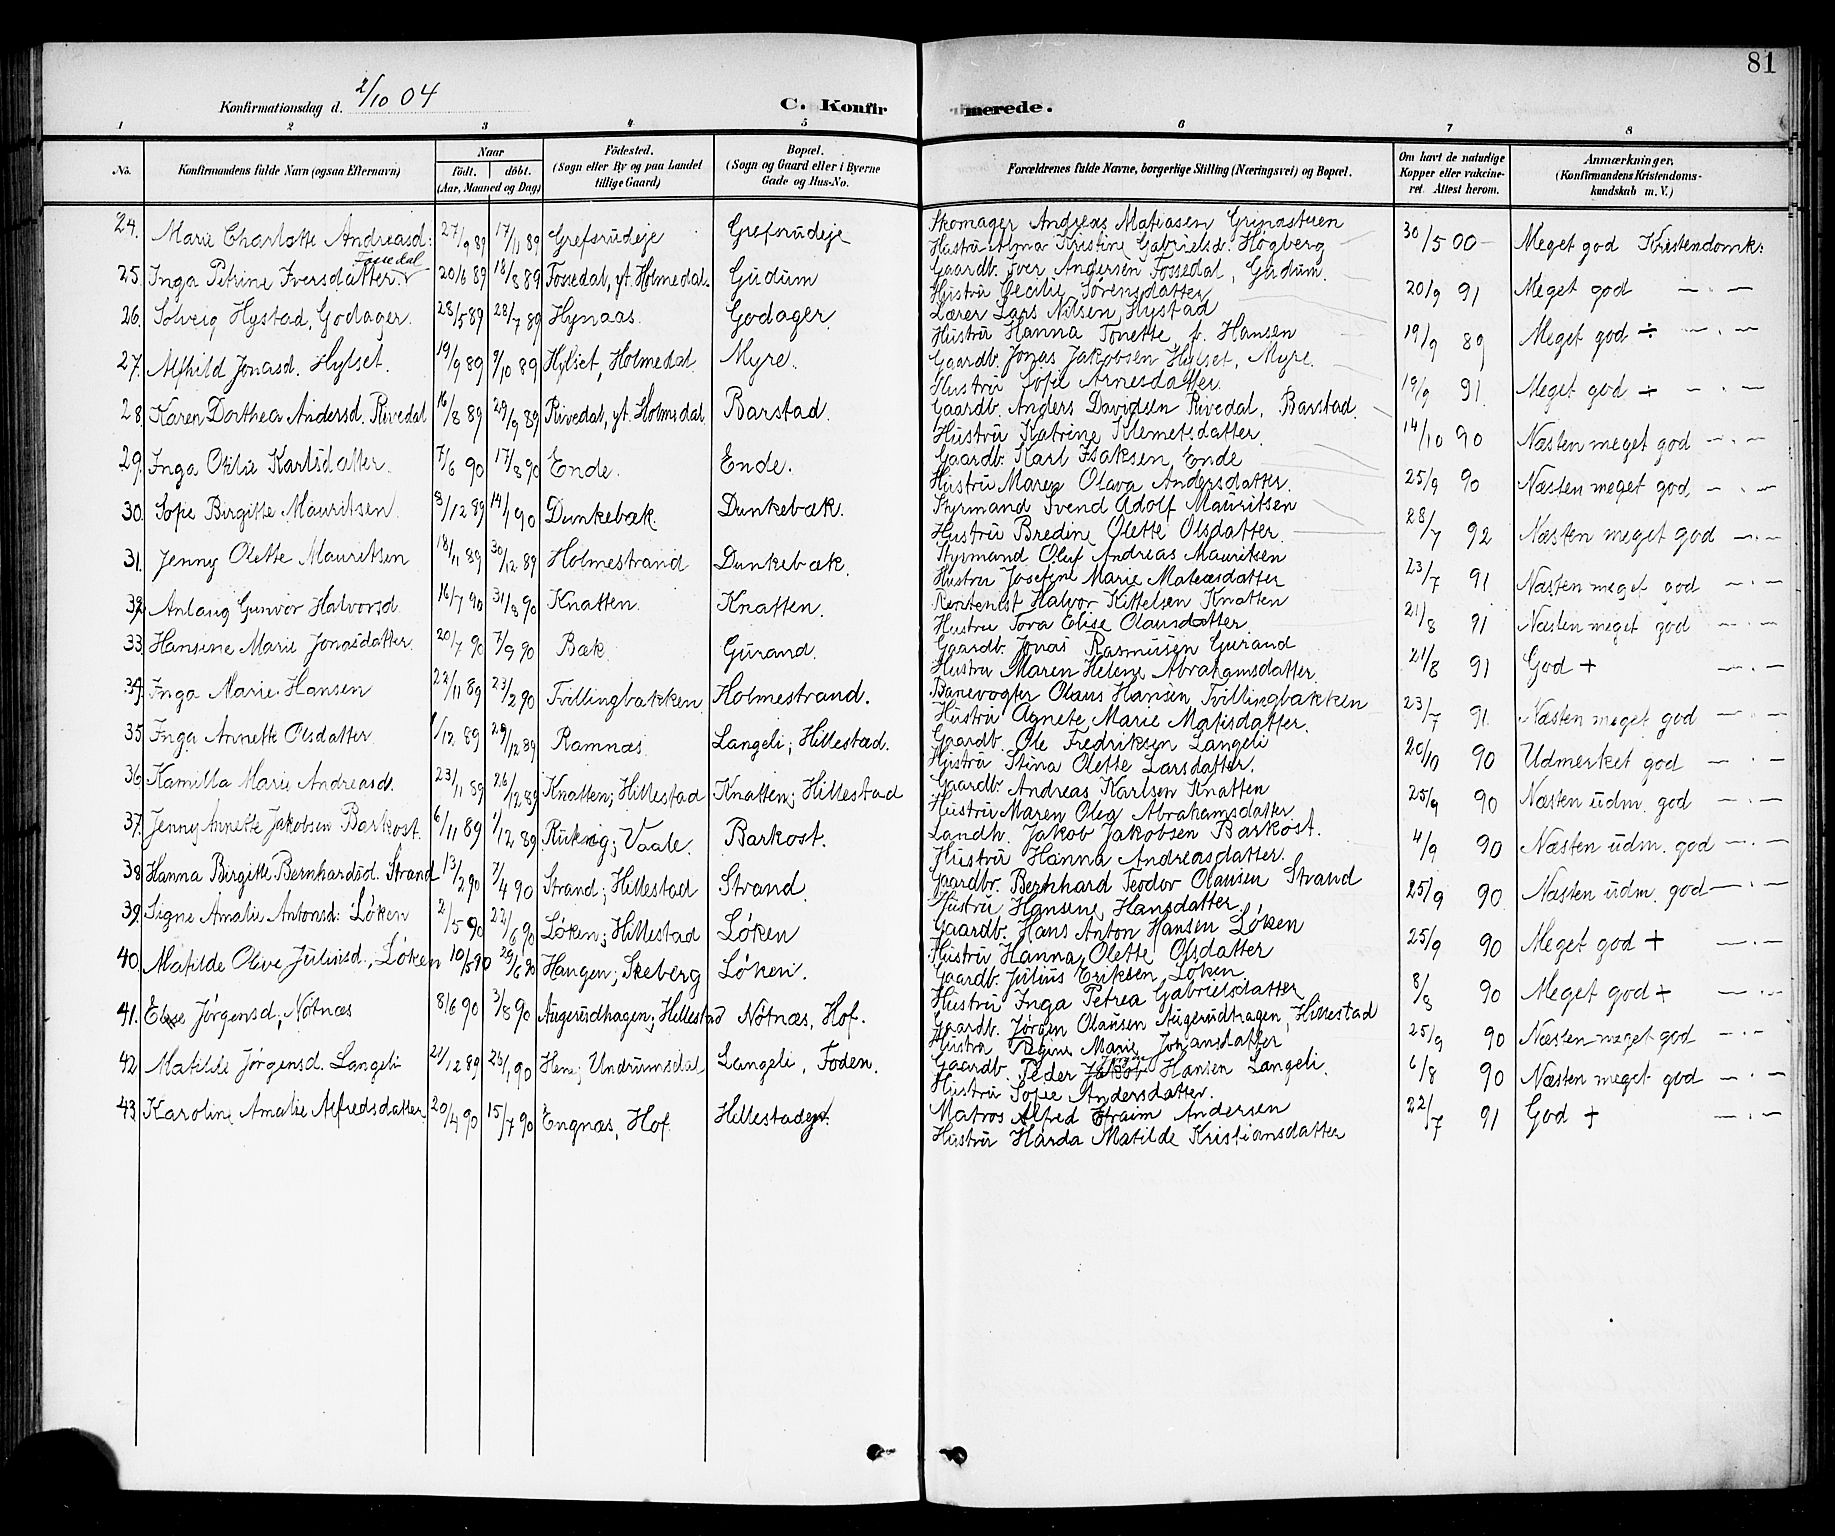 81
Konfirmationsdag d. 2/10 04
C. Konfirmerede.
1 2 3 4 5 6 7 8
No. Konfirmandens fulde Navn (ogsaa Efternavn) Naar født. døbt. (Aar, Maaned og Dag) Fødested. (Sogn eller By og paa Landet tillige Gaard) Bopæl. (Sogn og Gaard eller i Byerne Gade og Hus-No.) Forældrenes fulde Navne, borgerlige Stilling (Næringsvei) og Bopæl. Om havt de naturlige Kopper eller vakcineret. Attest herom. Anmærkninger. (Konfirmandens Kristendomskundskab m. V.)
24. Marie Charlotte Andreasd: 27/9 89 17/11 89 Grefsrudeje Grefsrudeje Skomager Andreas Matiasen Grinasteen 30/5 00 Meget god Kristendomk:
Hustru Alma Kristine Gabrielsd. Høgberg
25. Inga Petrine Iversdatter Fossedal 20/6 89 18/8 89 Fossedal, yt. Holmedal. Gudum Gaardb. Iver Andersen Fossedal, Gudum. 20/9 91 Meget god — . —
Hustru Cecilie Sørensdatter
26. Solveig Hystad, Godager. 28/5 89 28/7 89 Hynaas. Godager. Lærer Lars Nilsen Hystad 19/9 89 Meget god ÷ — . —
Hustru Hanna Tonette f. Hansen
27. Alfhild Jonasd. Hylset. 19/9 89 9/10 89 Hylset, Holmedal. Myre. Gaardb. Jonas Jakobsen Hylset, Myre. 19/9 91. Meget god ÷ — . —
Hustru Sofie Arnesdatter.
28. Karen Dorthea Andersd. Rivedal 16/8 89 29/9 89 Rivedal, yt. Holmedal. Barstad. Gaardb. Anders Davidsen Rivedal, Barstad. 14/10 90 Næsten meget god — . —
Hustru Katrine Klemetsdatter.
29. Inga Otilie Karlsdatter. 7/6 90 17/8 90 Ende. Ende. Gaardb. Karl Isaksen Ende 25/9 90 Næsten meget god — . —
Hustru Maren Olava Andersdatter.
30. Sofie Birgitte Mauritsen. 3/12 89 14/1 90 Dunkebæk. Dunkebæk. Styrmand Svend Adolf Mauritsen 28/7 92 Næsten meget god — . —
Hustru Bredine Olette Olsdatter.
31. Jenny Olette Mauritsen 18/11 89 30/12 89 Holmestrand Dunkebæk. Styrmand Oluf Andreas Mauritsen 23/7 91 Næsten meget god — . —
Hustru Josefine Marie Mateasdatter
32. Anlaug Gunvor Halvorsd 16/7 90 31/8 90 Knatten. Knatten. Rentenist Halvor Kittelsen Knatten 21/8 91 Næsten meget god — . —
Hustru Tora Elise Olausdatter
33. Hansine Marie Jonasdatter. 20/7 90 7/9 90 Bæk. Gurand. Gaardb. Jonas Rasmusen Gurand 21/8 91 God + — . —
Hustru Maren Helene Abrahamsdatter.
34. Inga Marie Hansen 22/11 89 23/2 90 Tvillingbakken. Holmestrand. Banevogter Olaus Hansen Tvillingbakken 23/7 91. Næsten meget god — . —
Hustru Agnete Marie Matisdatter.
35. Inga Annette Olsdatter 1/12 89 29/12 89 Ramnæs. Langeli; Hillestad. Gaardb. Ole Fredriksen Langeli 20/10 90 Udmerket god — . —
Hustru Stina Olette Larsdatter.
36. Kamilla Marie Andreasd. 23/11 89 26/12 89 Knatten; Hillestad Knatten; Hillestad Gaardb. Andreas Karlsen Knatten 25/9 90 Næsten udm. god — . —
Hustru Maren Olea Abrahamsdatter.
37. Jenny Annette Jakobsen Barkost. 6/11 89 1/12 89 Vaale. Barkost. Landh. Jakob Jakobsen Barkost. 4/9 90 Næsten udm. god — . —
Hustru Hanna Andreasdatter.
38. Hanna Birgitte Bernhardsd. Strand 13/2 90 7/4 90 Strand; Hillestad Strand. Gaardbr. Bernhard Teodor Olausen Strand 25/9 90. Næsten udm. god — . —
Hustru Hansine Hansdatter.
39. Signe Amalie Antonsd: Løken 2/5 90 22/6 90 Løken; Hillestad Løken Gaardb. Hans Anton Hansen Løken 25/9 90 Meget god + — . —
Hustru Hanna Olette Olsdatter
40. Matilde Olive Juliusd., Løken 10/5 90 29/6 90 Haugen; Skeberg Løken. Gaardb. Julius Eriksen Løken. 8/8 90 Meget god + — . —
Hustru Inga Petrea Gabrielsdatter
41. Elise Jørgensd, Nøtnæs 8/6 90 3/8 90 Augerudhagen; Hillestad Nøtnæs, Hof. Gaardb. Jørgen Olausen Augerudhagen, Hillestad 25/9 90 Næsten meget god — . —
Hustru Regine Marie Johansdatter
42. Matilde Jørgensd. Langeli 21/12 89 26/1 90 Hem; Undrumsdal Langeli, Foden. Gaardb. Peder Jakob Hansen Langeli. 6/8 90 Næsten meget god — . —
Hustru Sofie Andersdatter.
43. Karoline Amalie Alfredsdatter. 20/4 90 15/7 90 Engnæs, Hof. Hillestadejet. Matros Alfred Efraim Andersen 22/7 91 God + — . —
Hustru Harda Matilde Kristiansdatter